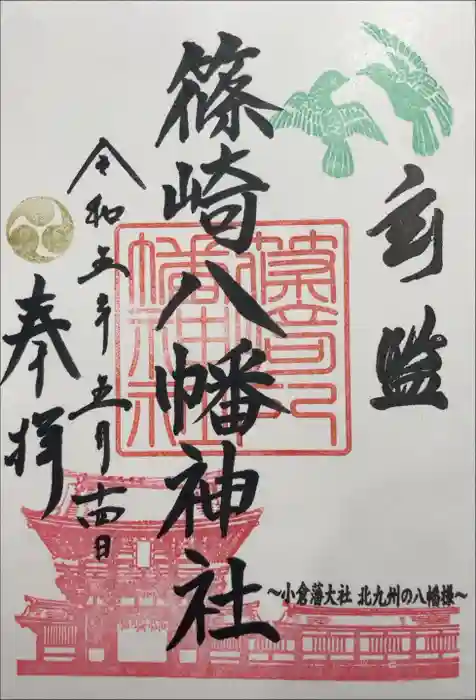 監
篠崎八幡神社
篠崎八
幡神社
令和五年五月十四日
奉拝
～小倉藩大社 北九州の八幡様～